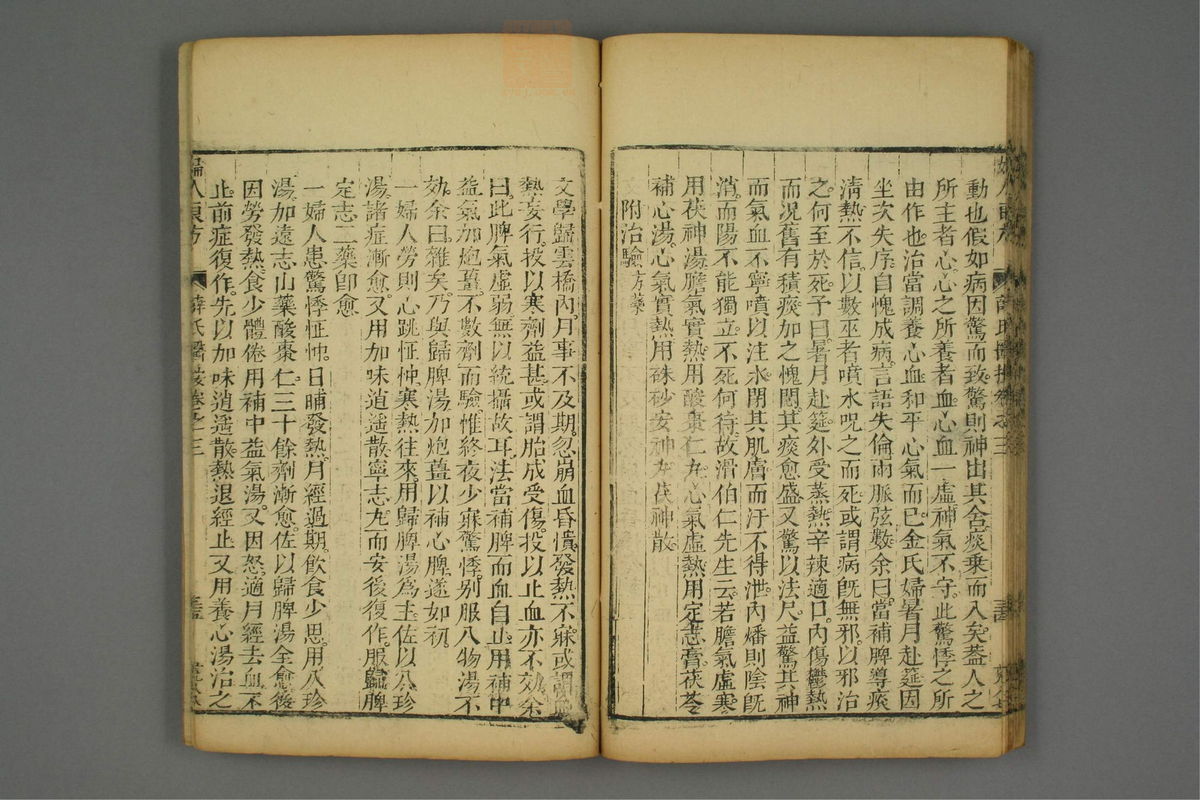 動也假如病因驚而致驚則神出其舍痰乘而入矣蓋人之
所主者心心之所養者血心血一虛神氣不守此驚悸之所
由作也治當調養心血和平心氣而已金氏婦暑月赴筵因
坐次失序自愧成病言語失倫兩脈弦數余曰當補脾導痰
清熱不信以數巫者噴水呪之而死或謂病旣無邪以邪治
之何至於死予曰暑月赴筵外受蒸熱辛辣適口內傷鬱熱
而况舊有積痰加之愧悶其痰愈盛又驚以法尺益驚其神
而氣血不寧噴以注水閉其肌膚而汗不得泄內燔則陰旣
消而陽不能獨立不死何待故滑伯仁先生云若膽氣虛寒
用茯神湯膽氣實熱用酸棗仁丸心氣虛熱用定志膏茯苓
補心湯心氣實熱用硃砂安神丸茯神散
附治驗方藥
文學歸雲橋內月事不及期忽崩血昏憒發熱不寐或謂
熱妄行投以寒劑益甚或謂胎成受傷投以止血亦不効余
曰此脾氣虛弱無以統攝故耳法當補脾而血自止用補中
益氣加炮薑不數劑而驗惟終夜少寐驚悸别服八物湯不
効余曰雜矣乃與歸脾湯加炮薑以補心脾遂如初
一婦人勞則心跳怔忡寒熱往來用歸脾湯爲主佐以八珍
湯諸症漸愈又用加味逍遥散寧志丸而安後復作服歸脾
定志二藥卽愈
一婦人患驚悸怔忡日晡發熱月經過期飲食少思用八珍
湯加遠志山藥酸棗仁三十餘劑漸愈佐以歸脾湯全愈後
因勞發熱食少體倦用補中益氣湯又因怒適月經去血不
止前症復作先以加味逍遥散熱退經止又用養心湯治之
婦人良方 薛氏醫按卷之三